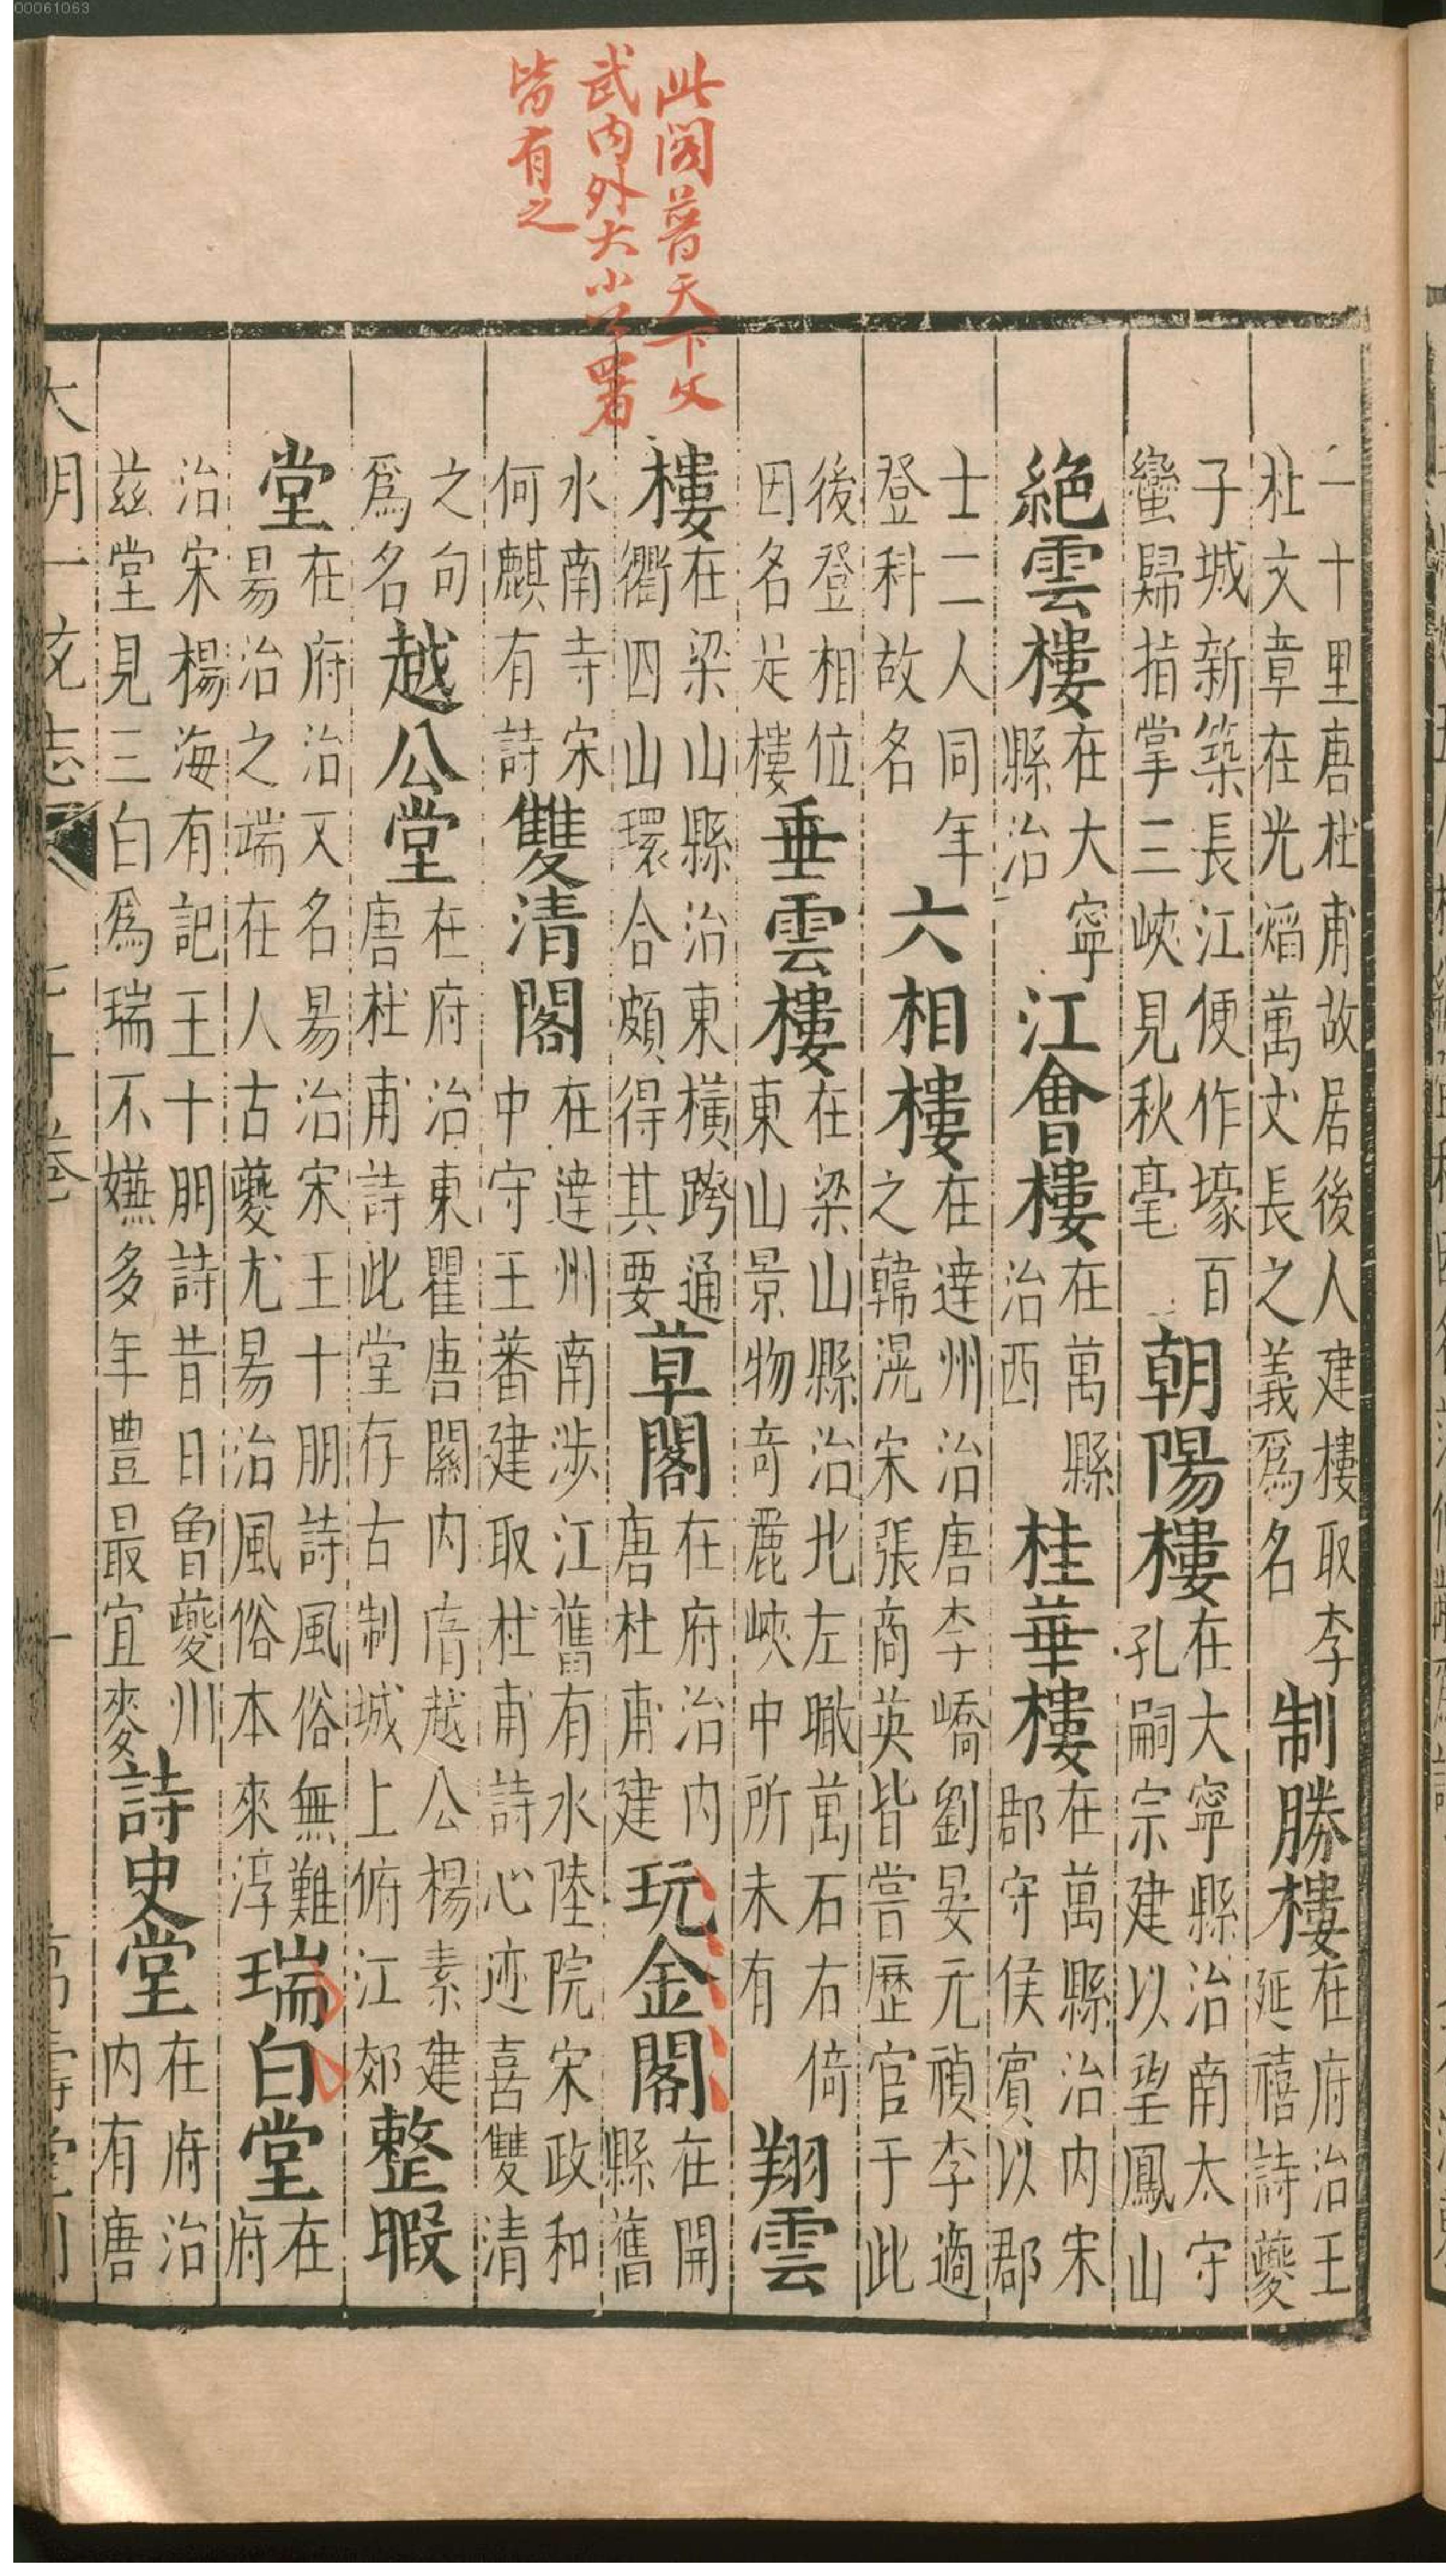 此閣普天下文
武内外大小公署
皆有之
一十里唐杜甫故居後人建樓取李杜文章在光熖萬丈長之義爲名制勝樓在府治王延禧詩夔
子城新築長江便作壕百蠻歸指掌三峽見秋毫朝陽樓在大寧縣治南太守孔嗣宗建以望鳳山
絕雲樓在大寧縣治江會樓在萬縣治西桂華樓在萬縣治内宋郡守侯賓以郡
士二人同年登科故名六相樓在達州治唐李嶠劉晏元稹李適之韓滉宋張商英皆嘗歷官于此
後登相位因名是樓垂雲樓在梁山縣治北左瞰萬石右倚東山景物奇麗峽中所未有翔雲
樓在梁山縣治東橫跨通衢四山環合頗得其要草閣在府治内唐杜甫建玩金閣在開縣舊
水南寺宋何麒有詩雙清閣在達州南渉江舊有水陸院宋政和中守王蕃建取杜甫詩心迹喜雙清
之句爲名越公堂在府治東瞿唐關内隋越公楊素建唐杜甫詩此堂存古制城上俯江郊整暇
堂在府治又名易治宋王十朋詩風俗無難易治之端在人古夔尤易治風俗本來淳瑞白堂在府
治宋楊海有記王十朋詩昔日魯夔州兹堂見三白爲瑞不嫌多年豐最宜麥詩史堂在府治内有唐
大明一統志
00061063